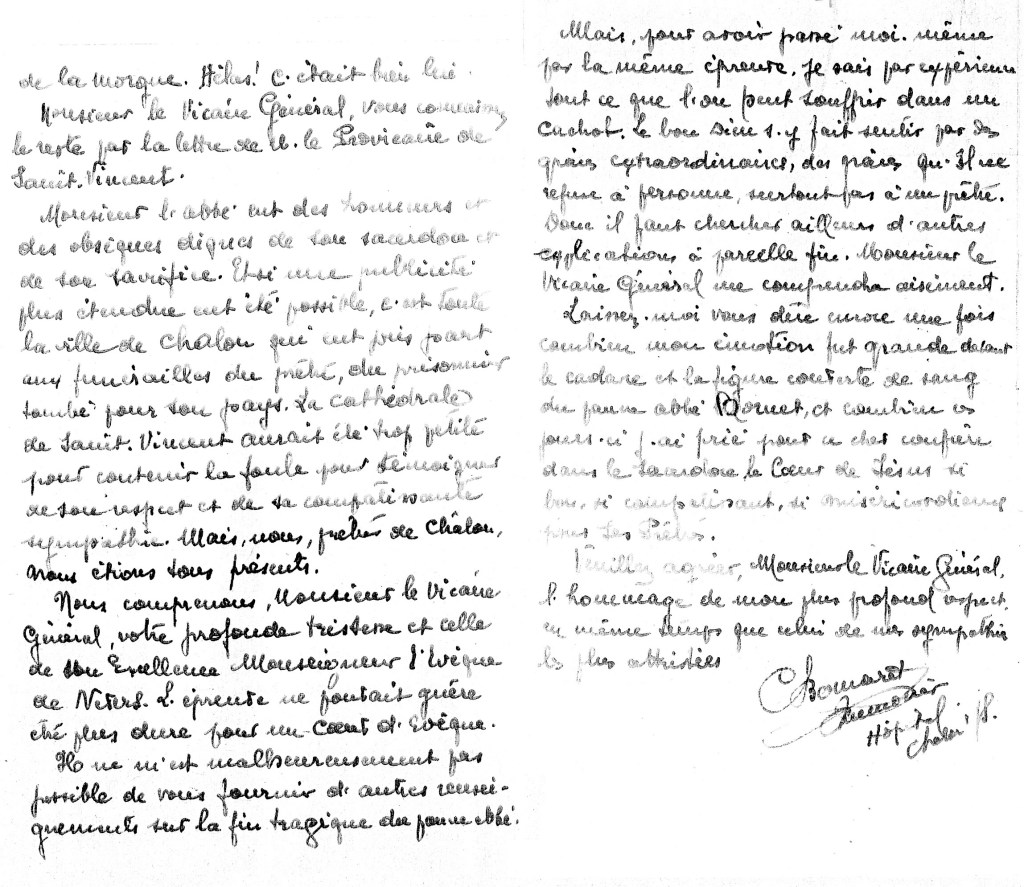 de la morgue. Hélas! c'était bien lui.
Monsieur le Vicaire Général, vous connaissez
le reste par la lettre de M. le Provicaire de
Saint-Vincent.
Monsieur l'abbé eut des honneurs et
des obsèques dignes de son sacerdoce et
de son sacrifice. Et si une publicité
plus étendue eut été possible, c'est toute
la ville de Chalon qui eut pris part
aux funérailles du prêtre, du prisonnier
tombé pour son pays. La Cathédrale
de Saint-Vincent aurait été trop petite
pour contenir la foule pour témoigner
de son respect et de sa compatissante
sympathie. Mais, nous, prêtres de Châlon,
nous étions tous présents.
Nous comprenons, Monsieur le Vicaire
Général, votre profonde tristesse et celle
de Son Excellence Monseigneur l'Evêque
de Nevers. L'épreuve ne pouvait guère
être plus dure pour un Cœur d'Evêque.
Il ne m'est malheureusement pas
possible de vous fournir d'autres rensei-
gnements sur la fin tragique du jeune abbé.
Mais, pour avoir passé moi-même
par la même épreuve, je sais par expérience
tout ce que l'on peut souffrir dans un
cachot. Le bon Dieu s'y fait sentir par des
grâces extraordinaires, des grâces qu'Il ne
refuse à personne, surtout pas à un prêtre.
Donc il faut chercher ailleurs d'autres
explications à pareille fin. Monsieur le
Vicaire Général me comprendra aisément.
Laissez-moi vous dire encore une fois
combien mon émotion fut grande devant
le cadavre et la figure couverte de sang
du jeune abbé Bornet, et combien ces
jours-ci j'ai prié pour ce cher confrère
dans le Sacerdoce, le Cœur de Jésus si
bon, si compatissant, si miséricordieux
pour Ses Prêtres.
Veuillez agréer, Monsieur le Vicaire Général,
l'hommage de mon plus profond respect,
en même temps que celui de mes sympathies
les plus attristées
Aumônier
Hôpital
Chalon s/S.